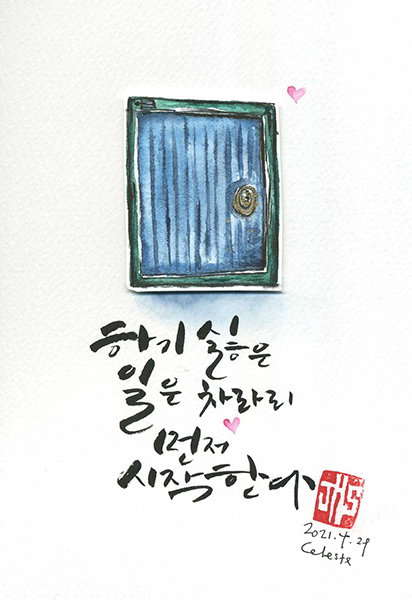 하기 싫은
일은 차라리
먼저
시작한다
JHS
2021.4.29
Celeste